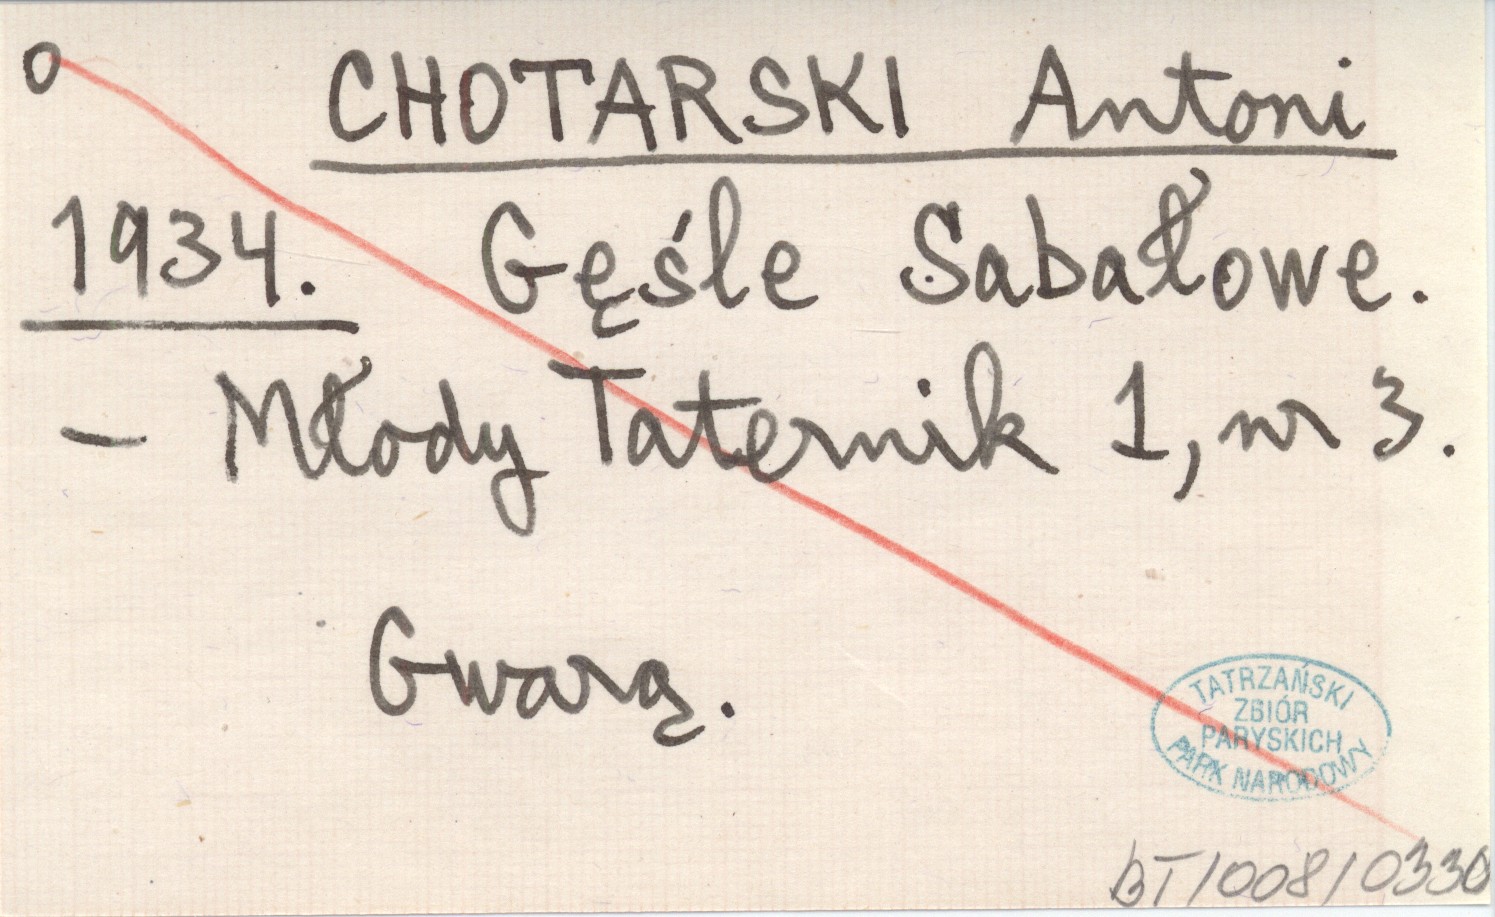 o CHOTARSKI Antoni
1934. Gęśle Sabałowe.
– Młody Taternik 1, nr 3.
Gwarą.
TATRZAŃSKI
ZBIÓR
PARYSKICH
PARK NARODOWY
BT/008/0330